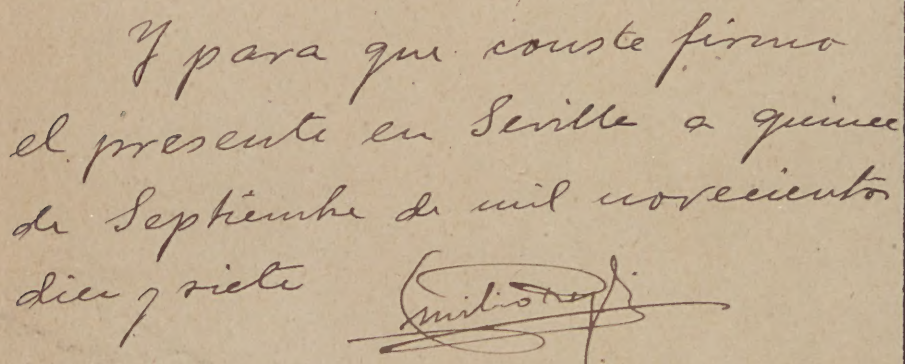 Y para que conste firmo
el presente en Sevilla a quince
de Septiembre de mil novecientos
diez y siete Emilio